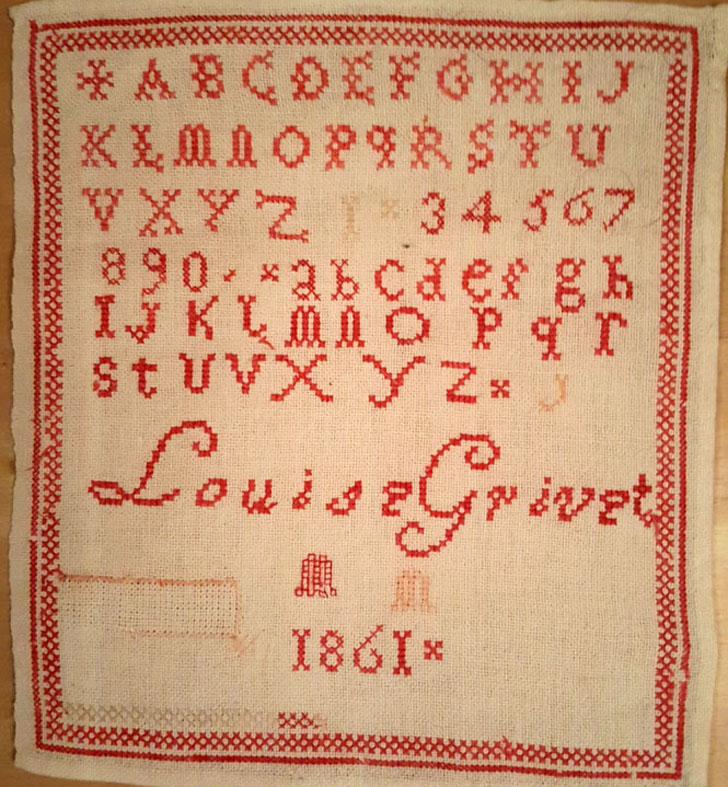 ABCDEFGHIJ
KLMNOPqRSTU
VXYZ 1 34567
890 abcdefgh
IJKlmnopqr
stUVXYZ J
Louise Grivet
M M
1861